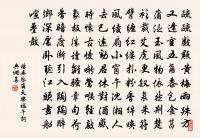 疏疏數點黃梅雨殊方
又逢重五角黍包金菖
蒲泛玉風物依然荊楚
衫裁艾虎更釵裊朱符臂
纏紅縷撲粉香綿喚
風綾扇小窗午沈湘人
去已遠勸君休對景感
時懷古慢囀鶯喉輕敲
象板勝讀離騷章句荷
香暗度漸引入陶陶醉
鄉深處臥聽江頭畫船
喧疊鼓
齊天樂端午詞